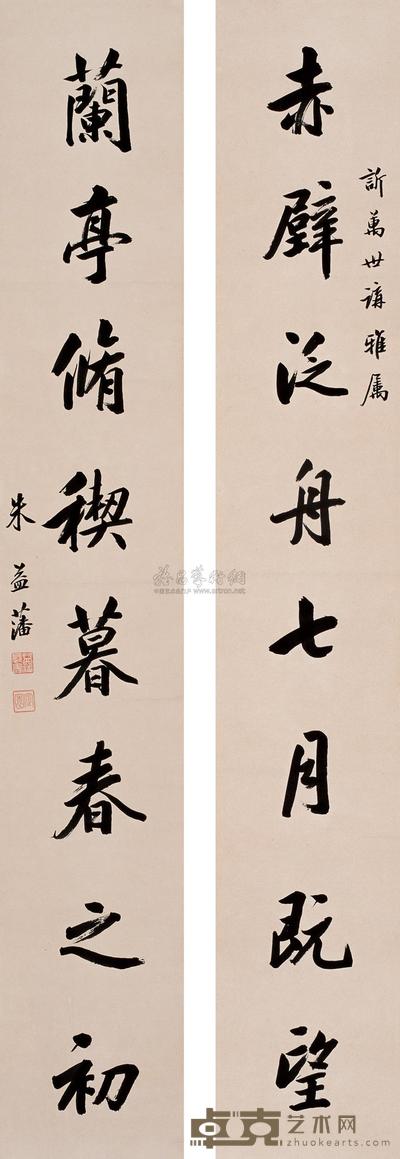 訢萬世講雅属
赤壁泛舟七月既望
蘭亭脩禊暮春之初
朱益藩
卓克艺术网
zhuokearts.com